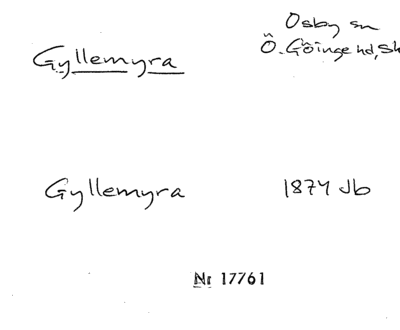 Osby sn
Gyllemyra
Ö. Göinge hd, Sk
Gyllemyra
1874 Jb
Nr 17761